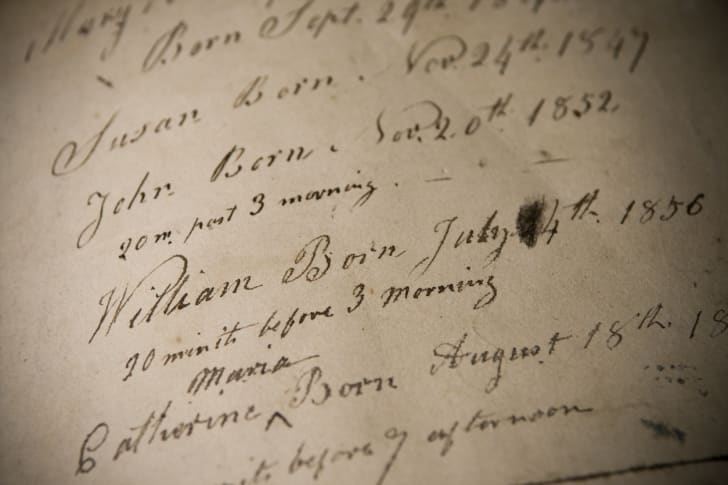 Mary
Born Sept. 29th
Susan Born. Nov. 24th 1847
John Born. Nov. 20th 1852.
20 m. past 3 morning.
William Born July 4th. 1856
20 minits before 3 morning
Maria
Catherine ^ Born August 18th. 18
before 7 afternoon